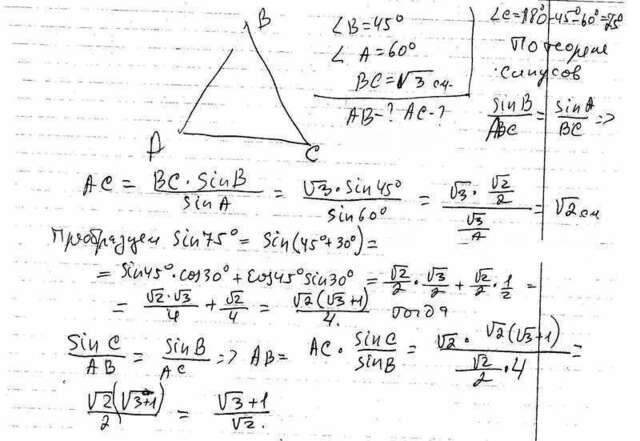 B
A
C
∠B=45°
∠A=60°
BC=√3 см.
AB-? AC-?
∠C=180°-45°-60°=75°
По теореме
синусов
sinB/ABC = sinA/BC =>
AC = BC·sinB/sinA = √3·sin45°/sin60° = (√3·√2/2)/(√3/2) = √2 см
Преобразуем sin75° = sin(45°+30°) =
= sin45°·cos30°+cos45°sin30° = √2/2·√3/2 + √2/2·1/2 =
= √2·√3/4 + √2/4 = √2(√3+1)/4. тогда
sinC/AB = sinB/AC => AB = AC·sinC/sinB = √2·√2(√3+1)/(√2/2·4) =
√2(√3+1)/2 = √3+1/√2.